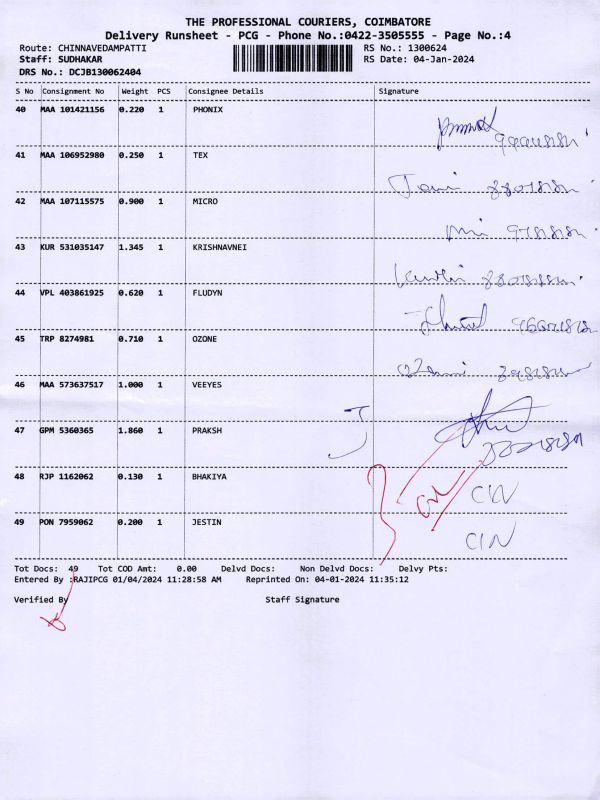 THE PROFESSIONAL COURIERS, COIMBATORE
Delivery Runsheet - PCG - Phone No.:0422-3505555 - Page No.:4
Route: CHINNAVEDAMPATTI RS No.: 1300624
Staff: SUDHAKAR RS Date: 04-Jan-2024
DRS No.: DCJB130062404
S No Consignment No Weight PCS Consignee Details Signature
40 MAA 101421156 0.220 1 PHONIX
41 MAA 106952980 0.250 1 TEX
42 MAA 107115575 0.900 1 MICRO
43 KUR 531035147 1.345 1 KRISHNAVNEI
44 VPL 403861925 0.620 1 FLUDYN
45 TRP 8274981 0.710 1 OZONE
46 MAA 573637517 1.000 1 VEEYES
47 GPM 5360365 1.860 1 PRAKSH
48 RJP 1162062 0.130 1 BHAKIYA
49 PON 7959062 0.200 1 JESTIN
Tot Docs: 49 Tot COD Amt: 0.00 Delvd Docs: Non Delvd Docs: Delvy Pts:
Entered By :RAJIPCG 01/04/2024 11:28:58 AM Reprinted On: 04-01-2024 11:35:12
Verified By Staff Signature